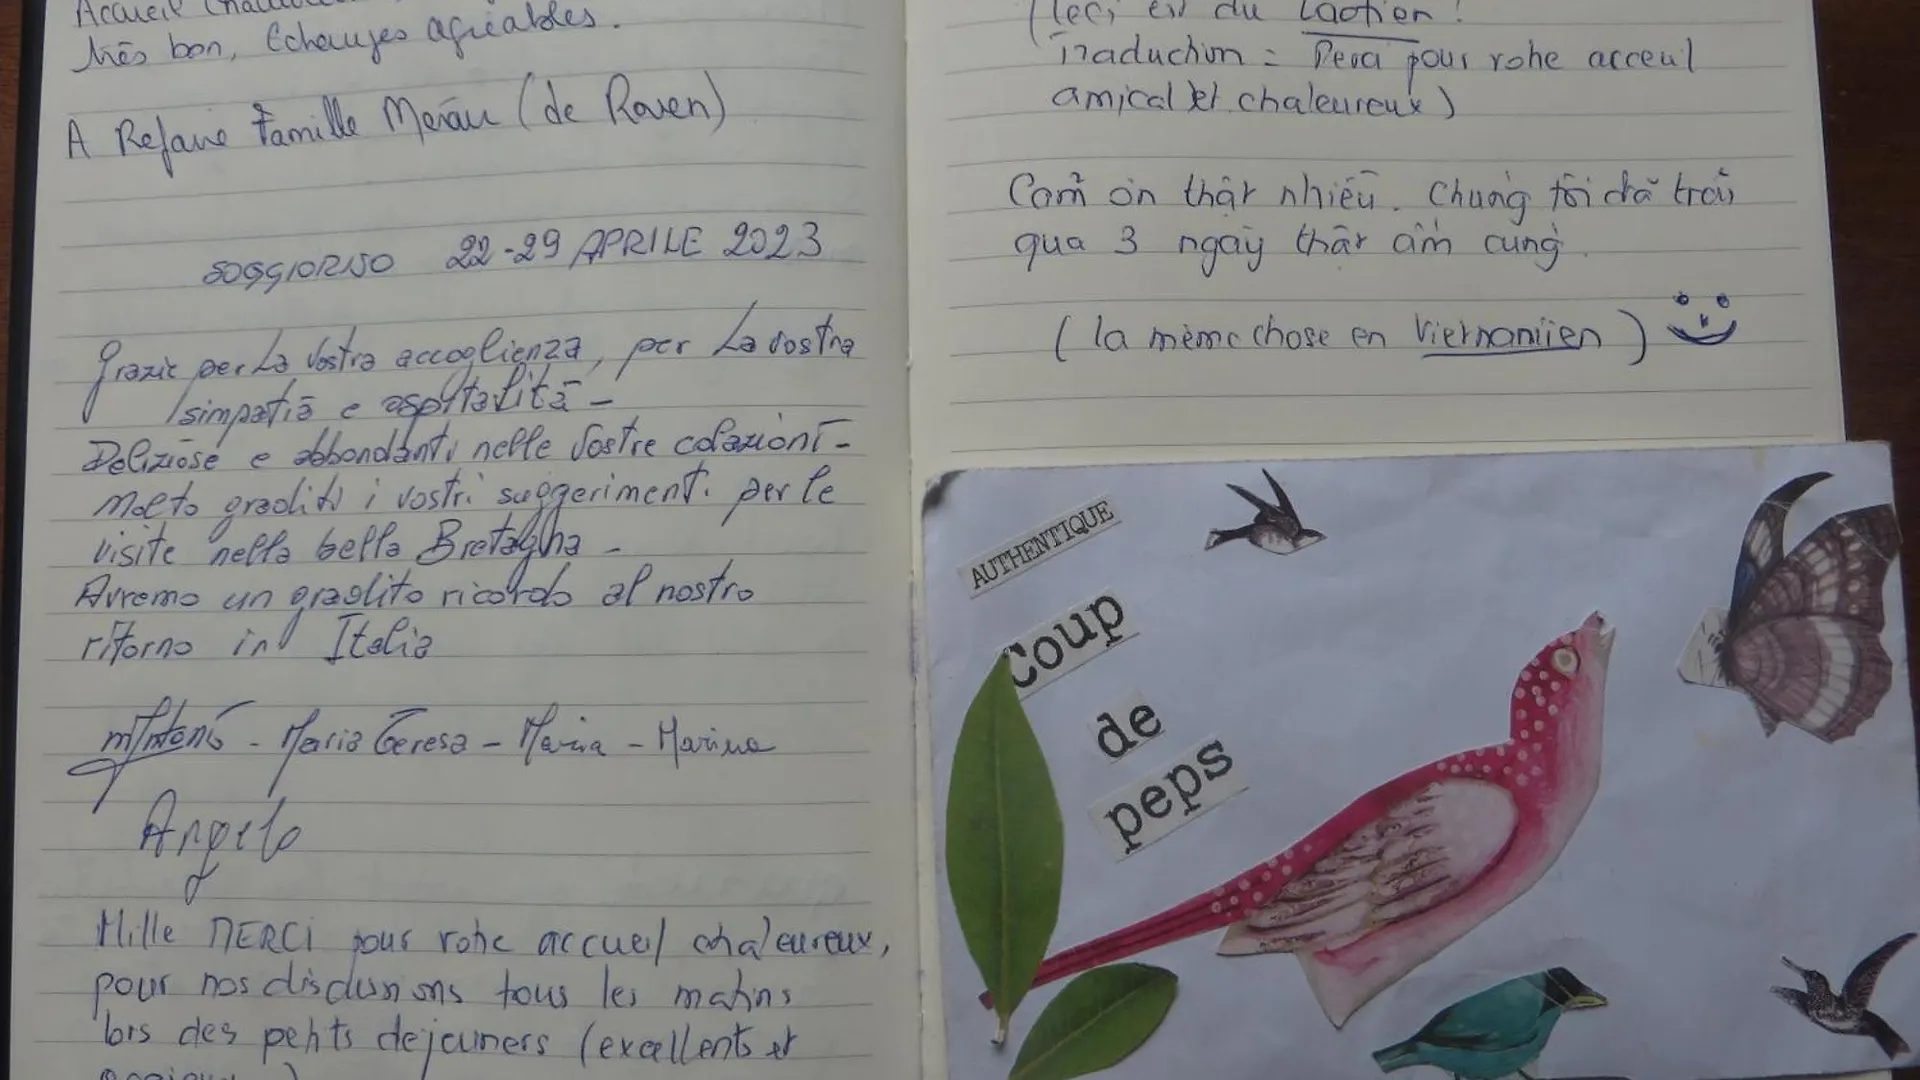 Accueil
très bon, Echanges agréables.
A Refaire Famille Merau (de Rouen)
SOGGIORNO 22-29 APRILE 2023
Grazie per la vostra accoglienza, per la vostra
simpatia e ospitalità -
Deliziose e abbondanti nelle vostre colazioni -
Molto graditi i vostri suggerimenti per le
visite nella bella Bretagna -
Avremo un gradito ricordo al nostro
ritorno in Italia
Maria Teresa - Maria - Marina
Angelo
Mille MERCI pour votre accueil chaleureux,
pour nos discussions tous les matins
lors des petits dejeuners (excellents et
(Ceci est du Laotien !
Traduction = Merci pour votre acceuil
amical et chaleureux)
Cám ởn thật nhiều. Chúng tôi đã trải
qua 3 ngày thật ấm cúng.
(la même chose en Vietnamiien)
AUTHENTIQUE
Coup
de
peps